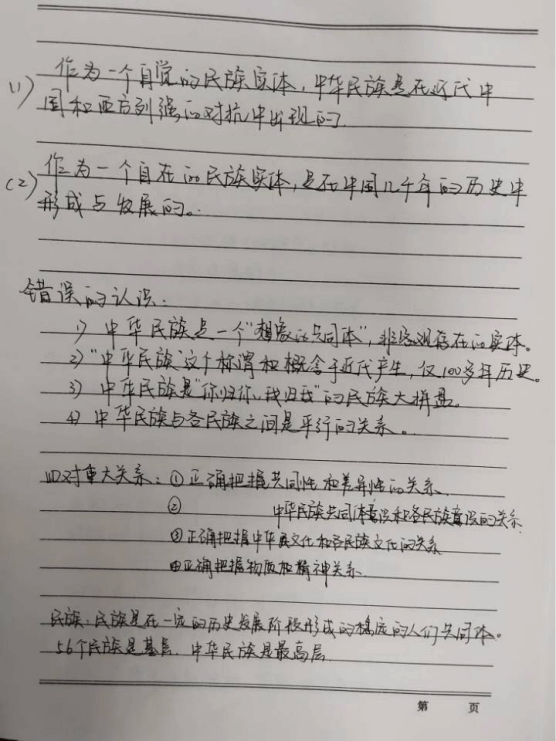 (1) 作为一个自觉的民族实体，中华民族是在近代中
国和西方列强的对抗中出现的
(2) 作为一个自在的民族实体，是在中国几千年的历史中
形成与发展的。
错误的认识：
1) 中华民族是一个"想象的共同体"，非客观存在的实体。
2) "中华民族"这个称谓和概念于近代产生，仅100多年历史。
3) 中华民族是"你归你，我归我"的民族大拼盘。
4) 中华民族与各民族之间是平行的关系。
四对重大关系：①正确把握共同性和差异性的关系
② 中华民族共同体意识和各民族意识的关系
③正确把握中华文化和各民族文化的关系
④正确把握物质和精神关系
民族：民族是在一定的历史发展阶段形成的稳定的人们共同体。
56个民族是基层，中华民族是最高层
第 页